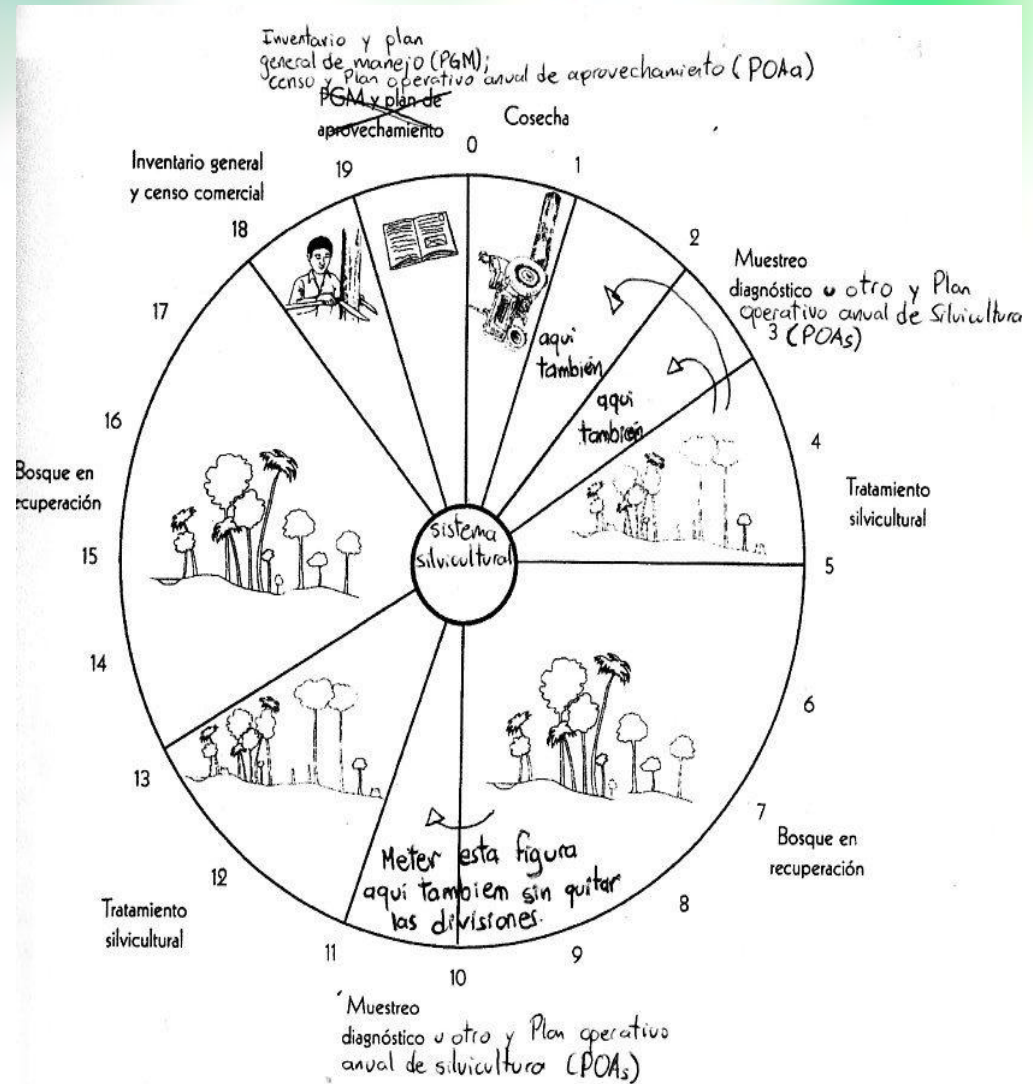 Inventario y plan
general de manejo (PGM);
censo y Plan operativo anual de aprovechamiento (POAa)
PGM y plan de
aprovechamiento
Cosecha
0
1
2
Muestreo
diagnóstico u otro y Plan
operativo anual de Silvicultura
3 (POAs)
4
Tratamiento
silvicultural
5
6
7
Bosque en
recuperación
8
9
10
Muestreo
diagnóstico u otro y Plan operativo
anual de silvicultura (POAs)
11
Tratamiento
silvicultural
12
13
14
15
Bosque en
ecuperación
16
17
18
Inventario general
y censo comercial
19
aquí
también
aquí
también
sistema
silvicultural
Meter esta figura
aquí tambien sin quitar
las divisiones.